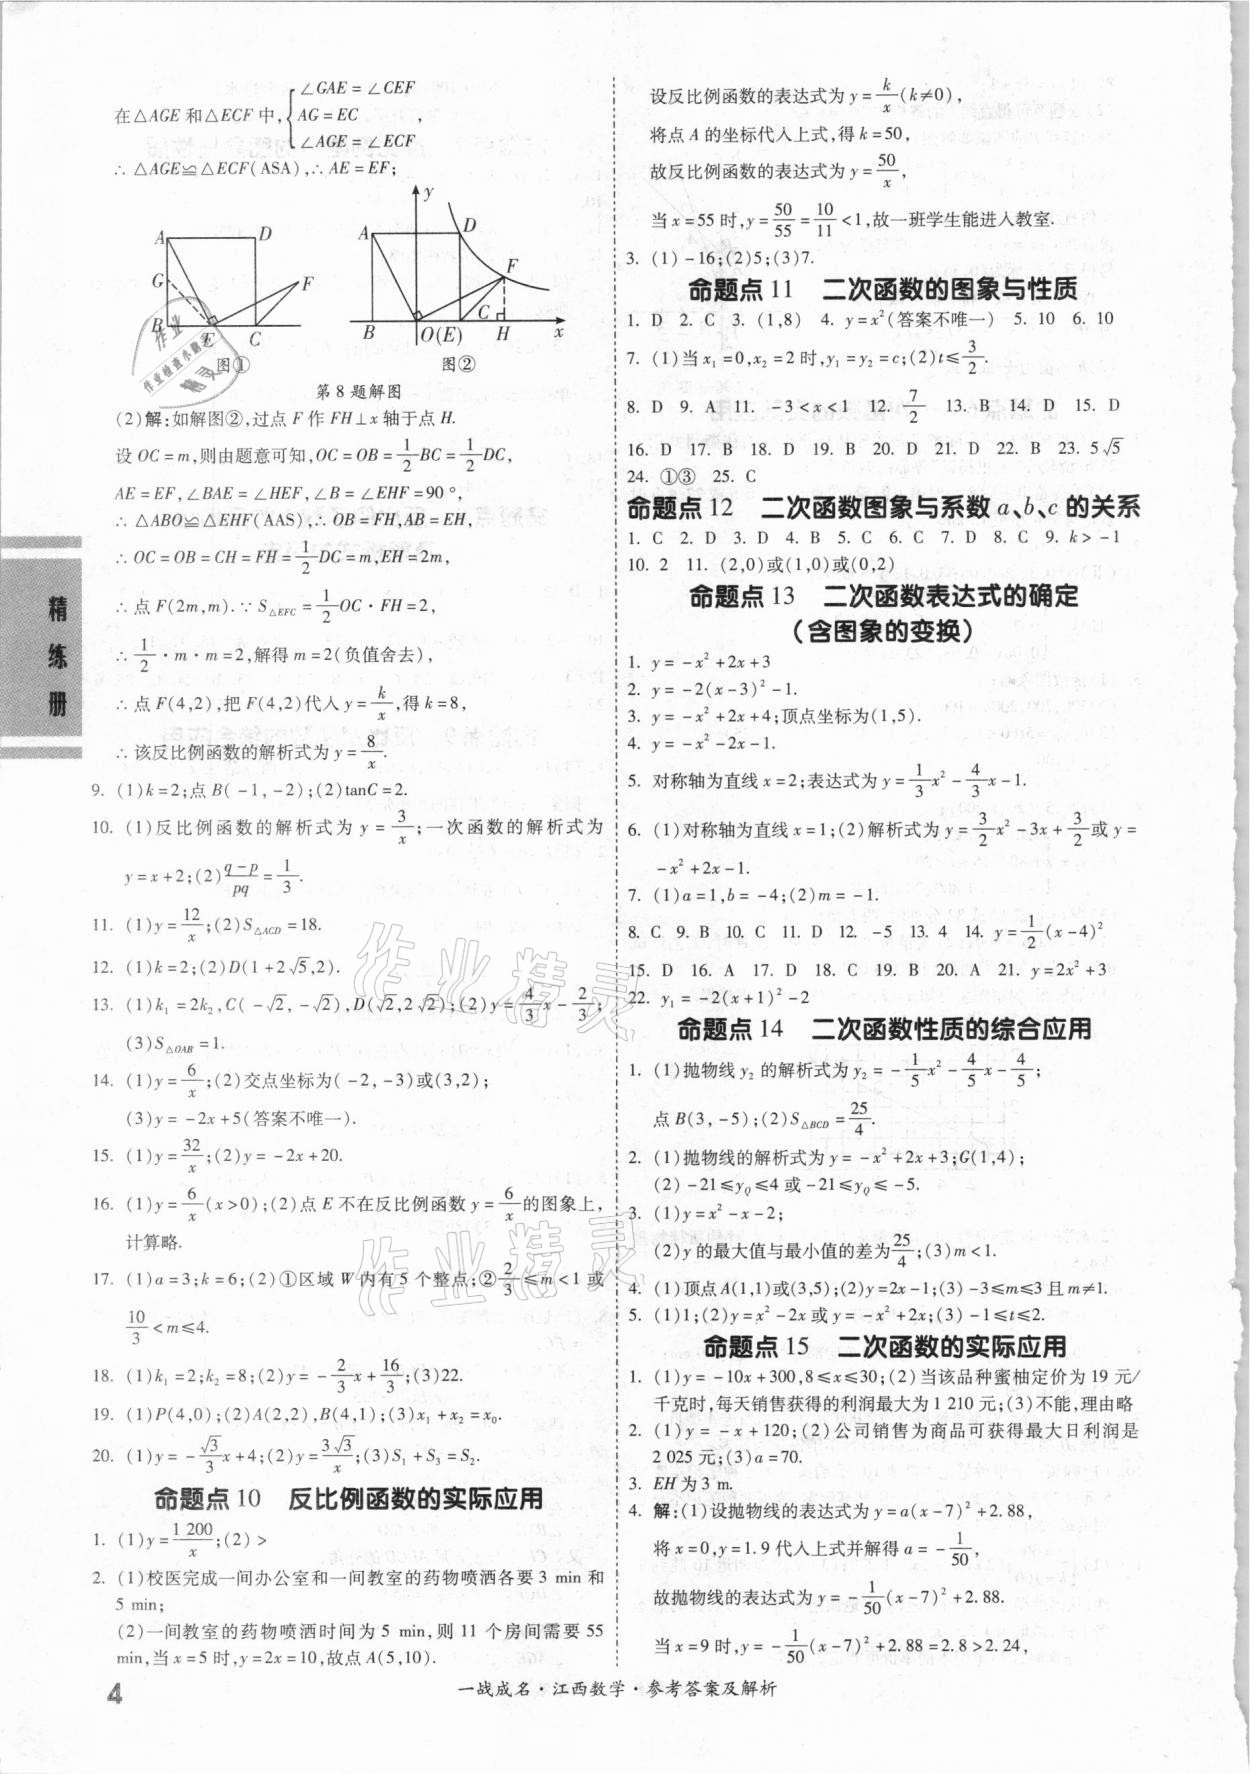 在△AGE 和△ECF 中,{∠GAE=∠CEF
AG=EC
∠AGE=∠ECF,
∴ △AGE≌△ECF(ASA),∴ AE=EF;
A D G F B E C
图①
y A D F C B O(E) H x
图②
第 8 题解图
(2)解:如解图②,过点 F 作 FH⊥x 轴于点 H.
设 OC=m,则由题意可知,OC=OB=1/2BC=1/2DC,
AE=EF,∠BAE=∠HEF,∠B=∠EHF=90°,
∴ △ABO≌△EHF(AAS),∴ OB=FH,AB=EH,
∴ OC=OB=CH=FH=1/2DC=m,EH=2m,
∴ 点 F(2m,m).∵ S△EFC=1/2OC·FH=2,
∴ 1/2·m·m=2,解得 m=2(负值舍去),
∴ 点 F(4,2),把 F(4,2)代入 y=k/x,得 k=8,
∴ 该反比例函数的解析式为 y=8/x.
9. (1)k=2;点 B(-1,-2);(2)tanC=2.
10. (1)反比例函数的解析式为 y=3/x;一次函数的解析式为
y=x+2;(2)(q-p)/pq=1/3.
11. (1)y=12/x;(2)S△ACD=18.
12. (1)k=2;(2)D(1+2√5,2).
13. (1)k₁=2k₂,C(-√2,-√2),D(√2,2√2);(2)y=4/3x-2/3;
(3)S△OAB=1.
14. (1)y=6/x;(2)交点坐标为(-2,-3)或(3,2);
(3)y=-2x+5(答案不唯一).
15. (1)y=32/x;(2)y=-2x+20.
16. (1)y=6/x(x>0);(2)点 E 不在反比例函数 y=6/x的图象上,
计算略.
17. (1)a=3;k=6;(2)①区域 W 内有 5 个整点;②2/3≤m<1 或
10/3<m≤4.
18. (1)k₁=2;k₂=8;(2)y=-2/3x+16/3;(3)22.
19. (1)P(4,0);(2)A(2,2),B(4,1);(3)x₁+x₂=x₀.
20. (1)y=-√3/3x+4;(2)y=3√3/x;(3)S₁+S₃=S₂.
命题点 10 反比例函数的实际应用
1. (1)y=1 200/x;(2) >
2. (1)校医完成一间办公室和一间教室的药物喷洒各要 3 min 和
5 min;
(2)一间教室的药物喷洒时间为 5 min,则 11 个房间需要 55
min,当 x=5 时,y=2x=10,故点 A(5,10).
设反比例函数的表达式为 y=k/x(k≠0),
将点 A 的坐标代入上式,得 k=50,
故反比例函数的表达式为 y=50/x,
当 x=55 时,y=50/55=10/11<1,故一班学生能进入教室.
3. (1)-16;(2)5;(3)7.
命题点 11 二次函数的图象与性质
1. D 2. C 3. (1,8) 4. y=x²(答案不唯一) 5. 10 6. 10
7. (1)当 x₁=0,x₂=2 时,y₁=y₂=c;(2)t≤3/2.
8. D 9. A 11. -3<x<1 12. 7/2 13. B 14. D 15. D
16. D 17. B 18. D 19. B 20. D 21. D 22. B 23. 5√5
24. ①③ 25. C
命题点 12 二次函数图象与系数 a、b、c 的关系
1. C 2. D 3. D 4. B 5. C 6. D 7. D 8. C 9. k>-1
10. 2 11. (2,0)或(1,0)或(0,2)
命题点 13 二次函数表达式的确定
(含图象的变换)
1. y=-x²+2x+3
2. y=-2(x-3)²-1.
3. y=-x²+2x+4;顶点坐标为(1,5).
4. y=-x²-2x-1.
5. 对称轴为直线 x=2;表达式为 y=1/3x²-4/3x-1.
6. (1)对称轴为直线 x=1;(2)解析式为 y=3/2x²-3x+3/2或 y=
-x²+2x-1.
7. (1)a=1,b=-4;(2)m=-1.
8. C 9. B 10. C 11. D 12. -5 13. 4 14. y=1/2(x-4)²
15. D 16. A 17. D 18. C 19. B 20. A 21. y=2x²+3
22. y₁=-2(x+1)²-2
命题点 14 二次函数性质的综合应用
1. (1)抛物线 y₂ 的解析式为 y₂=-1/5x²-4/5x-4/5;
点 B(3,-5);(2)S△BCD=25/4.
2. (1)抛物线的解析式为 y=-x²+2x+3;G(1,4);
(2)-21≤yQ≤4 或-21≤yQ≤-5.
3. (1)y=x²-x-2;
(2)y 的最大值与最小值的差为25/4;(3)m<1.
4. (1)顶点 A(1,1)或(3,5);(2)y=2x-1;(3)-3≤m≤3 且 m≠1.
5. (1)1;(2)y=x²-2x 或 y=-x²+2x;(3)-1≤t≤2.
命题点 15 二次函数的实际应用
1. (1)y=-10x+300,8≤x≤30;(2)当该品种蜜柚定价为 19 元/
千克时,每天销售获得的利润最大为 1 210 元;(3)不能,理由略
2. (1)y=-x+120;(2)公司销售为商品可获得最大日利润是
2 025 元;(3)a=70.
3. EH 为 3 m.
4. 解:(1)设抛物线的表达式为 y=a(x-7)²+2.88,
将 x=0,y=1.9 代入上式并解得 a=-1/50,
故抛物线的表达式为 y=-1/50(x-7)²+2.88.
当 x=9 时,y=-1/50(x-7)²+2.88=2.8>2.24,
精练册
4
一战成名·江西数学·参考答案及解析
作业精灵
作业精灵
作业
作业检查小助手
精灵